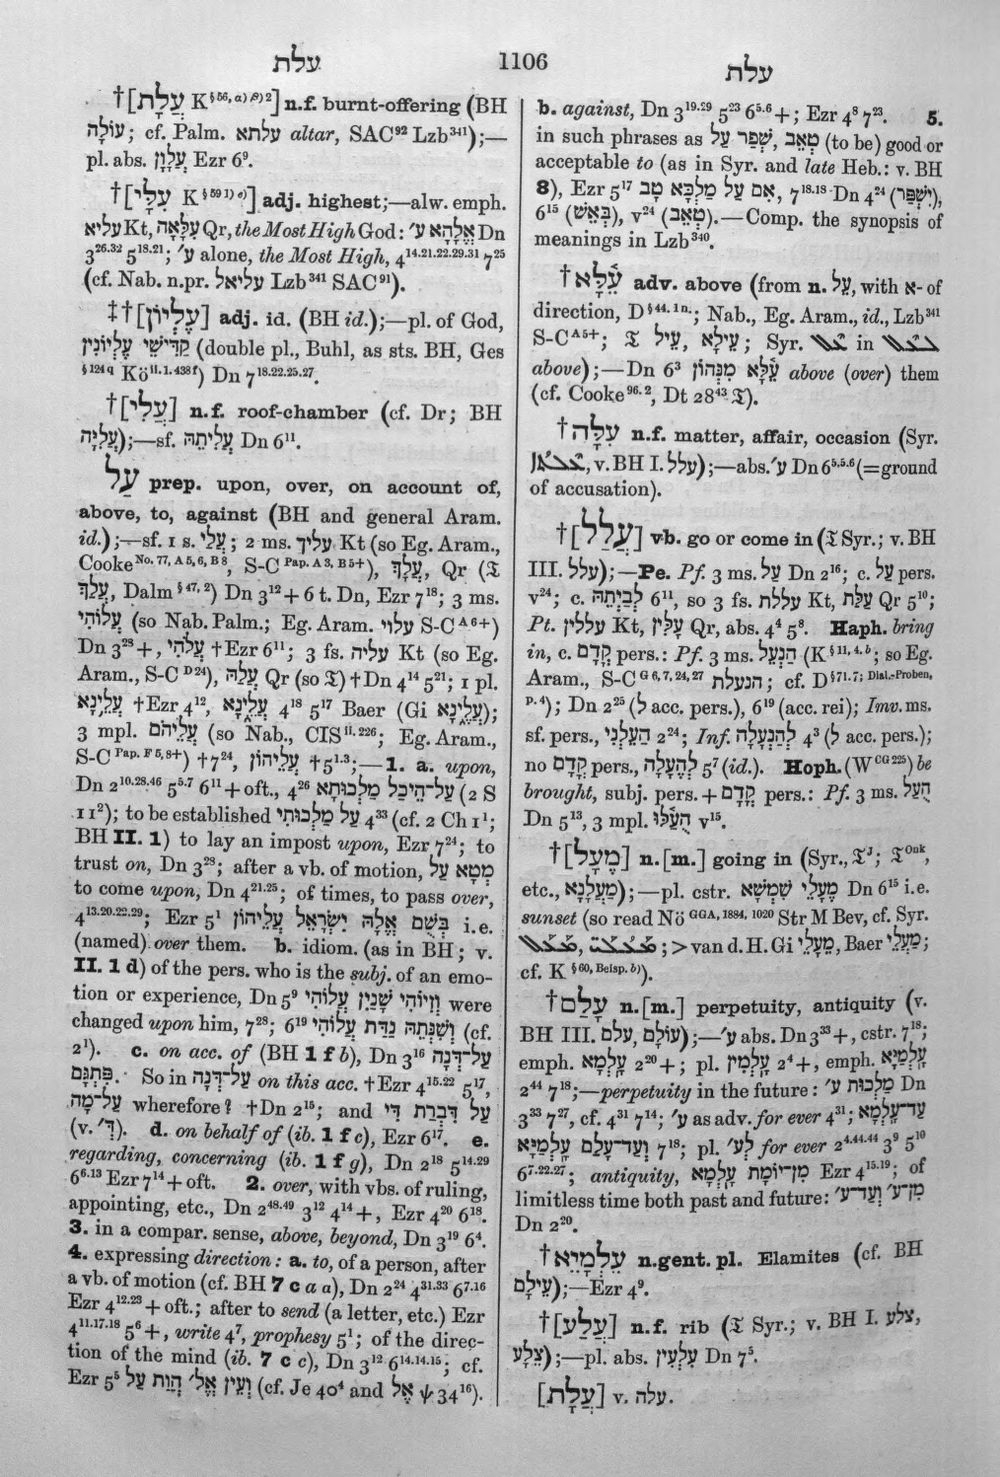 עלת
1106
עלת
†[עֲלָת K§56, a) β) 2] n.f. burnt-offering (BH
עוֹלָה; cf. Palm. עלתא altar, SAC92 Lzb341);—
pl. abs. עֲלָוָן Ezr 69.
†[עִלָּי K§59 1) e)] adj. highest;—alw. emph.
עליא Kt, עִלָּאָה Qr, the Most High God: אֱלָהָא ע׳ Dn
326.32 518.21; ע׳ alone, the Most High, 414.21.22.29.31 725
(cf. Nab. n.pr. עליאל Lzb341 SAC91).
‡†[עֶלְיוֹן] adj. id. (BH id.);—pl. of God,
קַדִּישֵׁי עֶלְיוֹנִין (double pl., Buhl, as sts. BH, Ges
§124q Köii. 1. 438f) Dn 718.22.25.27.
†[עֲלִי] n.f. roof-chamber (cf. Dr; BH
עֲלִיָּה);—sf. עִלִּיתֵהּ Dn 611.
עַל prep. upon, over, on account of,
above, to, against (BH and general Aram.
id.);—sf. 1 s. עֲלַי; 2 ms. עליך Kt (so Eg. Aram.,
CookeNo. 77, A 5, 6, B 8, S-CPap. A 3, B 5+), עֲלָךְ, Qr (𝔗
עֲלָךְ, Dalm§47, 2) Dn 312 + 6 t. Dn, Ezr 718; 3 ms.
עֲלוֹהִי (so Nab. Palm.; Eg. Aram. עלוי S-CA6+)
Dn 328 +, עֲלֹהִי †Ezr 611; 3 fs. עליה Kt (so Eg.
Aram., S-CD24), עֲלַהּ Qr (so 𝔗) †Dn 414 521; 1 pl.
עֲלֶינָא †Ezr 412, עֲלֶינָא 418 517 Baer (Gi עֲלֶינָא);
3 mpl. עֲלֵיהֹם (so Nab., CISii. 226; Eg. Aram.,
S-CPap. F 5, 8+) †724, עֲלֵיהוֹן †51.3;—1. a. upon,
Dn 210.28.46 55.7 611 + oft., 426 עַל־הֵיכַל מַלְכוּתָא (2 S
112); to be established עַל מַלְכוּתִי 433 (cf. 2 Ch 11;
BH II. 1) to lay an impost upon, Ezr 724; to
trust on, Dn 328; after a vb. of motion, מְטָא עַל
to come upon, Dn 421.25; of times, to pass over,
413.20.22.29; Ezr 51 בְּשֻׁם אֱלָהּ יִשְׂרָאֵל עֲלֵיהוֹן i.e.
(named) over them. b. idiom. (as in BH; v.
II. 1 d) of the pers. who is the subj. of an emo-
tion or experience, Dn 59 וְזִיוֹהִי שָׁנַיִן עֲלוֹהִי were
changed upon him, 728; 619 וְשִׁנְתֵּהּ נַדַּת עֲלוֹהִי (cf.
21). c. on acc. of (BH 1 f b), Dn 316 עַל־דְּנָה
פִּתְגָּם. So in עַל־דְּנָה on this acc. †Ezr 415.22 517,
עַל־מָה wherefore? †Dn 215; and עַל דִּבְרַת דִּי
(v. דְּ׳). d. on behalf of (ib. 1 f c), Ezr 617. e.
regarding, concerning (ib. 1 f g), Dn 218 514.29
66.13 Ezr 714 + oft. 2. over, with vbs. of ruling,
appointing, etc., Dn 248.49 312 414 +, Ezr 420 618.
3. in a compar. sense, above, beyond, Dn 319 64.
4. expressing direction: a. to, of a person, after
a vb. of motion (cf. BH 7 c a a), Dn 224 431.33 67.16
Ezr 412.23 + oft.; after to send (a letter, etc.) Ezr
411.17.18 56 +, write 47, prophesy 51; of the direc-
tion of the mind (ib. 7 c c), Dn 312 614.14.15; cf.
Ezr 55 וְעֵין אֱל׳ הֲוָת עַל (cf. Je 404 and אֶל ψ 3416).
b. against, Dn 319.29 523 65.6 +; Ezr 48 723. 5.
in such phrases as טְאֵב, שְׁפַר עַל (to be) good or
acceptable to (as in Syr. and late Heb.: v. BH
8), Ezr 517 אִם עַל מַלְכָּא טָב, 718.18 Dn 424 (יִשְׁפַּר),
615 (בְּאֵשׁ), v24 (טְאֵב).—Comp. the synopsis of
meanings in Lzb340.
†עֵלָּא adv. above (from n. עַל, with א- of
direction, D§44. 1n.; Nab., Eg. Aram., id., Lzb341
S-CA5+; 𝔗 עֵילָא, עֵיל; Syr. ܥܠ in ܠܥܠ
above);—Dn 63 עֵלָּא מִנְּהוֹן above (over) them
(cf. Cooke96. 2, Dt 2843 𝔗).
†עִלָּה n.f. matter, affair, occasion (Syr.
ܥܠܬܐ, v. BH I. עלל);—abs. ע׳ Dn 65.5.6 (= ground
of accusation).
†[עֲלַל] vb. go or come in (𝔗 Syr.; v. BH
III. עלל);—Pe. Pf. 3 ms. עַל Dn 216; c. עַל pers.
v24; c. לְבַיְתֵהּ 611, so 3 fs. עללת Kt, עַלַּת Qr 510;
Pt. עללין Kt, עָלִּין Qr, abs. 44 58. Haph. bring
in, c. קֳדָם pers.: Pf. 3 ms. הַנְעֵל (K§11, 4. b; so Eg.
Aram., S-CG 6, 7, 24, 27 הנעלת; cf. D§71. 7; Dial.-Proben,
P. 4); Dn 225 (ל acc. pers.), 619 (acc. rei); Imv. ms.
sf. pers., הַעֵלְנִי 224; Inf. לְהַנְעָלָה 43 (ל acc. pers.);
no קֳדָם pers., לְהֶעָלָה 57 (id.). Hoph. (WCG 225) be
brought, subj. pers. + קֳדָם pers.: Pf. 3 ms. הֻעַל
Dn 513, 3 mpl. הֻעַלּוּ v15.
†[מֶעָל] n.[m.] going in (Syr., 𝔗J; 𝔗Onk,
etc., מַעֲלָנָא);—pl. cstr. מֶעָלֵי שִׁמְשָׁא Dn 615 i.e.
sunset (so read NöGGA, 1884, 1020 Str M Bev, cf. Syr.
; > van d. H. Gi מֶעָלֵי, Baer מַעֲלֵי;
cf. K§60, Beisp. b)).
†עָלַם n.[m.] perpetuity, antiquity (v.
BH III. עוֹלָם, עלם);—ע׳ abs. Dn 333 +, cstr. 718;
emph. עָלְמָא 220 +; pl. עָלְמִין 24 +, emph. עָלְמַיָּא
244 718;—perpetuity in the future: מַלְכוּת ע׳ Dn
333 727, cf. 431 714; ע׳ as adv. for ever 431; עַד־עָלְמָא
וְעַד־עָלַם עָלְמַיָּא 718; pl. לְע׳ for ever 24.44.44 39 510
67.22.27; antiquity, מִן־יוֹמָת עָלְמָא Ezr 415.19; of
limitless time both past and future: מִן־ע׳ וְעַד־ע׳
Dn 220.
†עֵלְמָיֵא n.gent. pl. Elamites (cf. BH
עֵילָם);—Ezr 49.
†[עֲלַע] n.f. rib (𝔗 Syr.; v. BH I. צלע,
צֵלָע);—pl. abs. עִלְעִין Dn 75.
[עֲלָת] v. עלה.